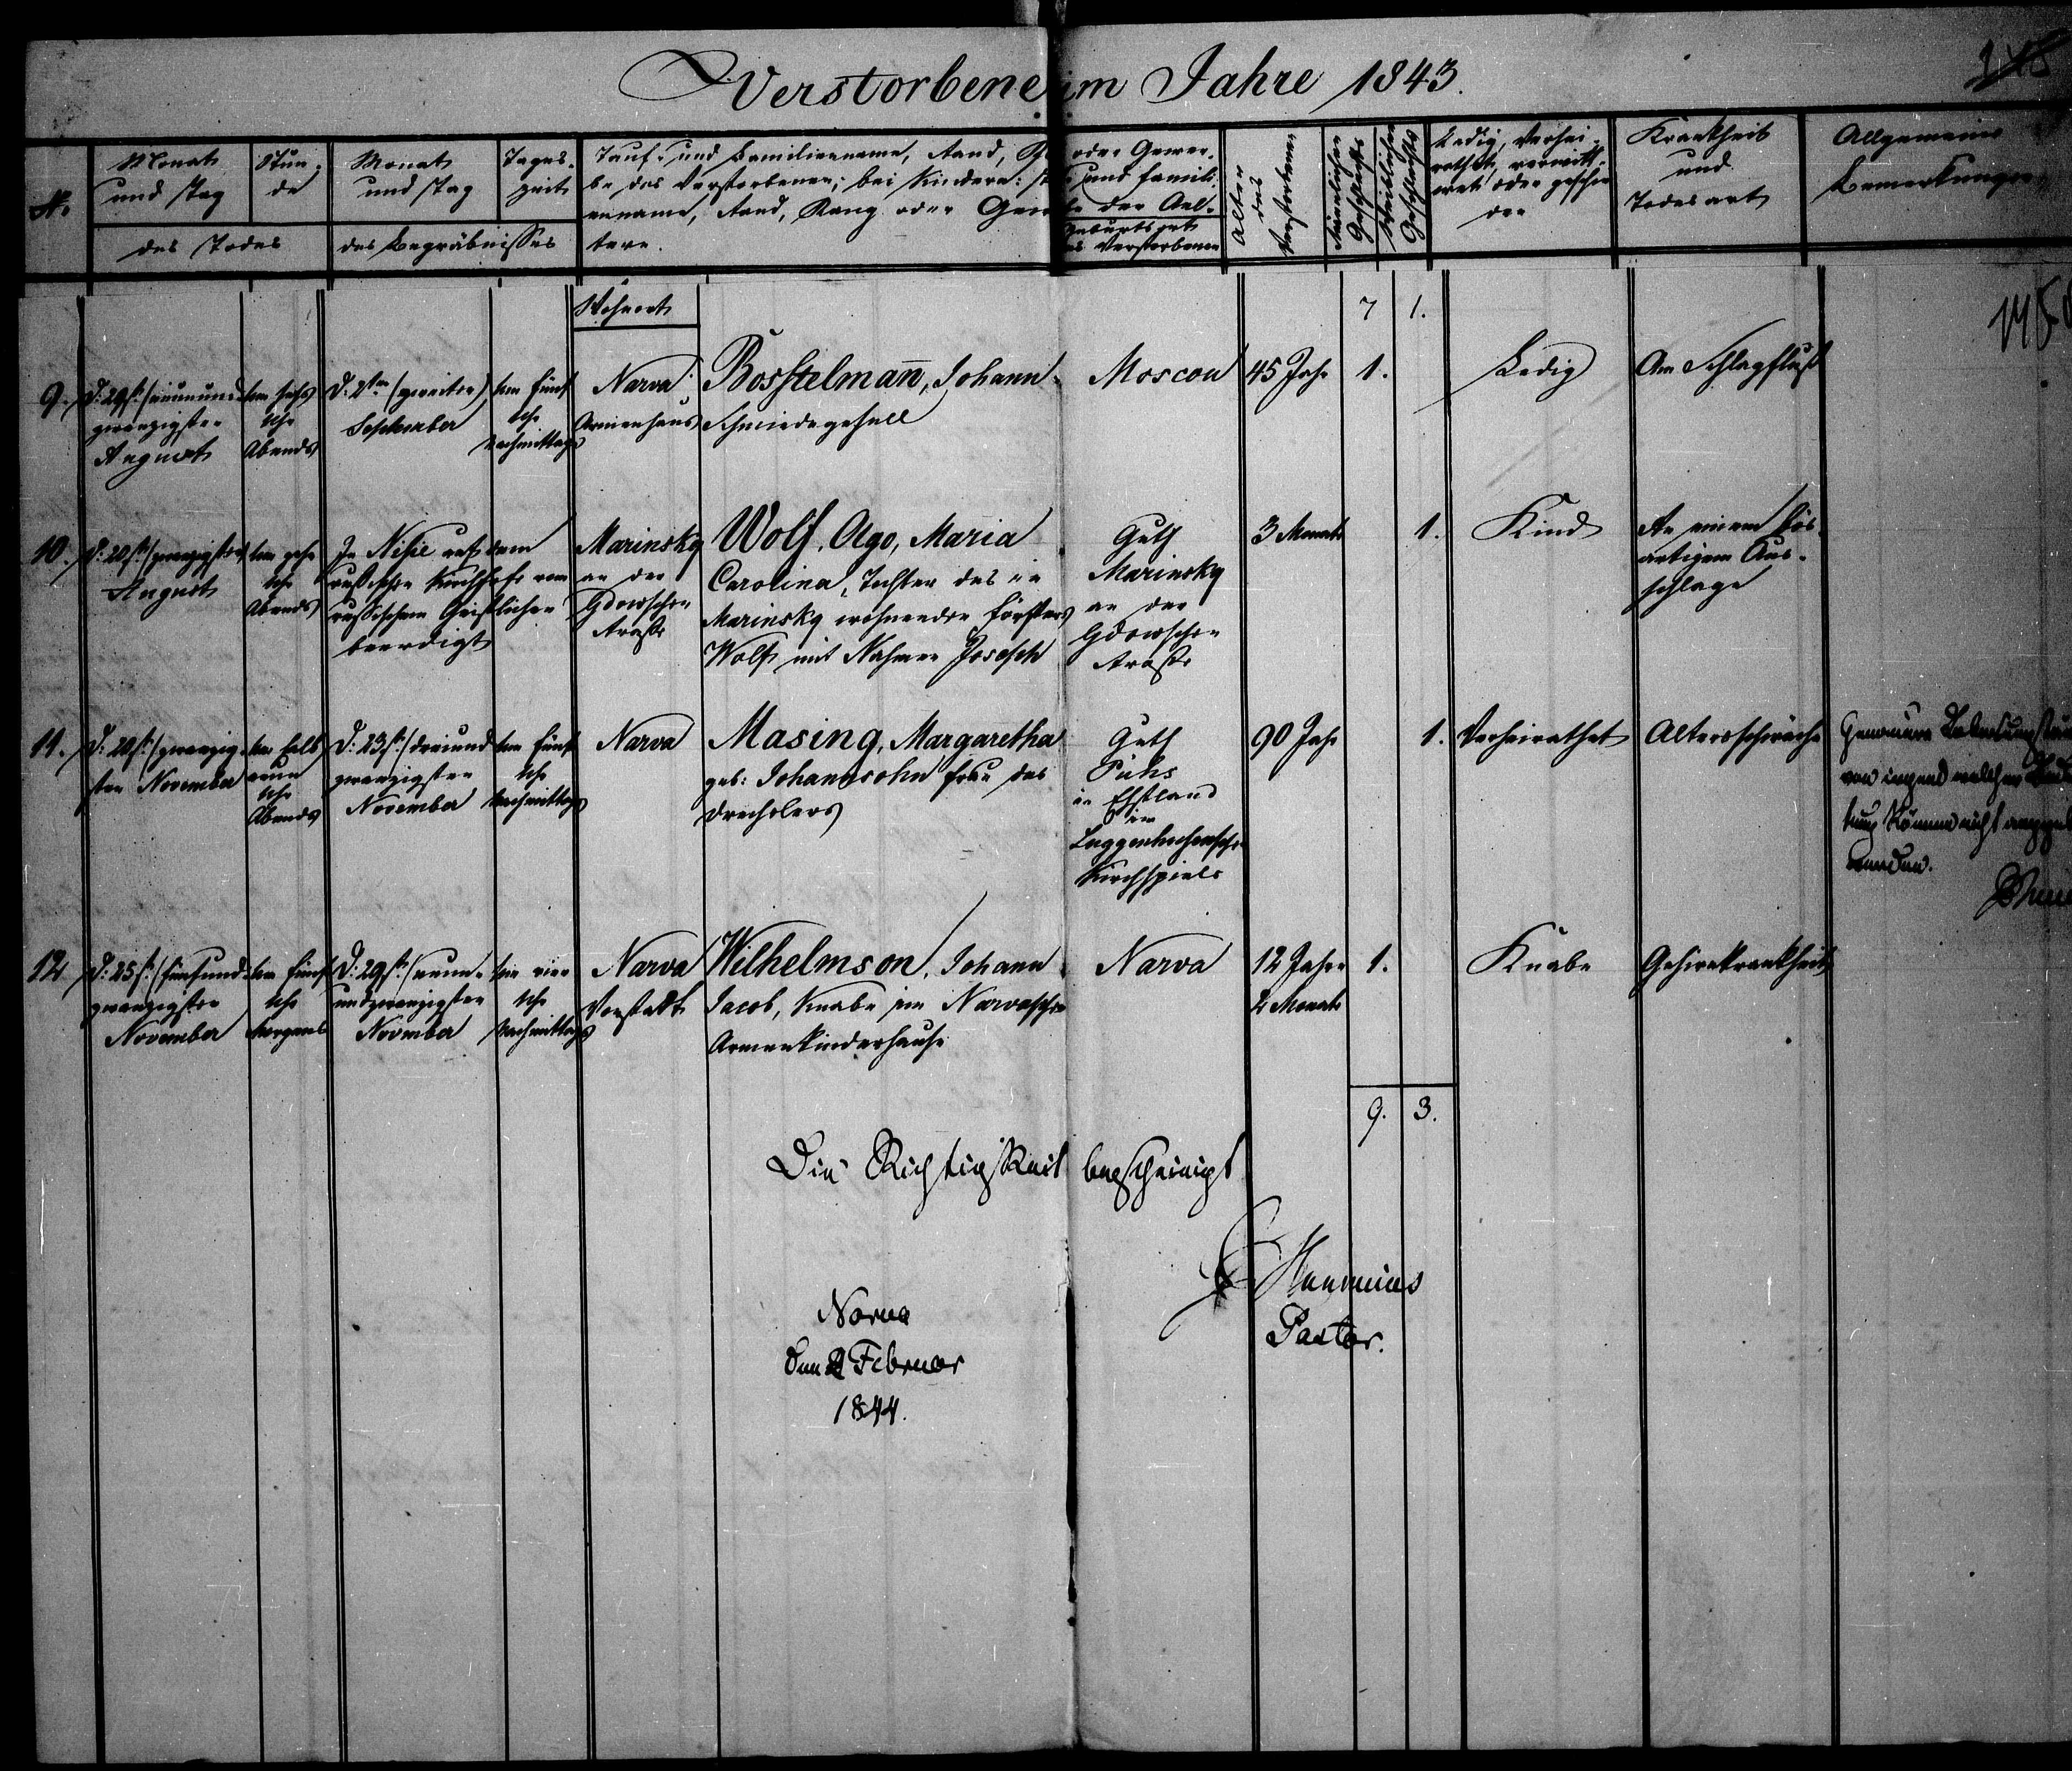 Verstorbene im Jahre 1843.
No
Monat und Tag
Stun-
de
des Todes
Monat und Tag
Tages-
zeit
des Begräbnisses
Tauf- und Familienname, Stand,
be des Verstorbenen; bei Kindern:
enname, Stand, Rang oder Gew
tern.
oder Gewer-
und Famili-
be der Ael-
Geburtsort
des Verstorbenen
Alter
des
Verstorbenen
Männlichen
Geschlechts
Weiblichen
Geschlechts
Ledig, Verhei-
rathet, verwitt-
wet oder geschie
den
Krankheit
und
Todesart
Allgemeine
Bemerkungen
Wohnort
7 1.
9.
D: 29st: (neunund-
zwanzigsten
August
um sechs
Uhr
Abends
D: 2ten (zweiten)
September
um fünf
Uhr
Nachmittags
Narva
Armenhaus
Bosstelman̄, Johann
Schmiedegesell
Moscou
45 Jahr
1.
Ledig
Am Schlagfluß
10.
D: 20st: (zwanzigsten)
August
um zehn
Uhr
Abends
In Nisie auf dem
russischen Kirchhofe vom
russischem Geistlichen
beerdigt
Marinsky
an der
Gdowschen
Straße
Wolf, Olga, Maria
Carolina, Tochter des in
Marinsky wohnenden Försters
Wolf mit Nahmen Joseph
Guth
Marinsky
an der
Gdowschen
Straße
3 Monate
1.
Kind
An einem bös-
artigem Aus-
schlage
11.
D: 20st: (zwanzig-
sten November
um halb
neun
Uhr
Abends
D: 23st: (dreiund
zwanzigsten
November
um fünf
Uhr
Nachmittags
Narva
Masing, Margaretha
geb: Johannsohn Frau des
Drechslers
Guth
Pühs
in Ehstland
im
Luggenhusenschen
Kirchspiele
90 Jahr
1.
Verheirathet
Altersschwäche
von irgend welcher
können nicht
werden.
12.
D: 25st: (fünfund-
zwanzigsten
November
um fünf
Uhr
Morgens
D: 29st: (neun-
undzwanzigsten
Novmber
um vier
Uhr
Nachmittags
Narva
Vorstadt
Wilhelmson, Johann
Jacob, Knabe im Narvaschen
Armenkinderhause
Narva
12 Jahre
4 Monate
1.
Knabe
Gehirnkrankheit
9. 3.
Die Richtigkeit bescheinigt
Hunnius
Pastor.
Narva
Februar
1844.